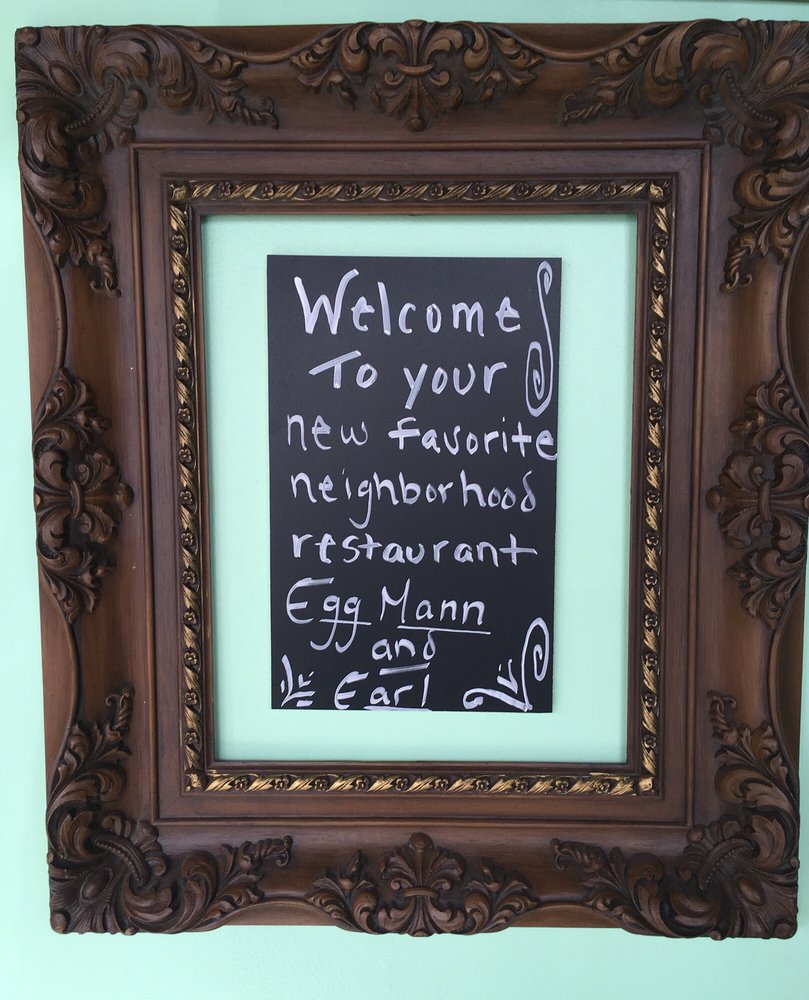 Welcome
To your
new favorite
neighborhood
restaurant
Egg Mann
and
Earl